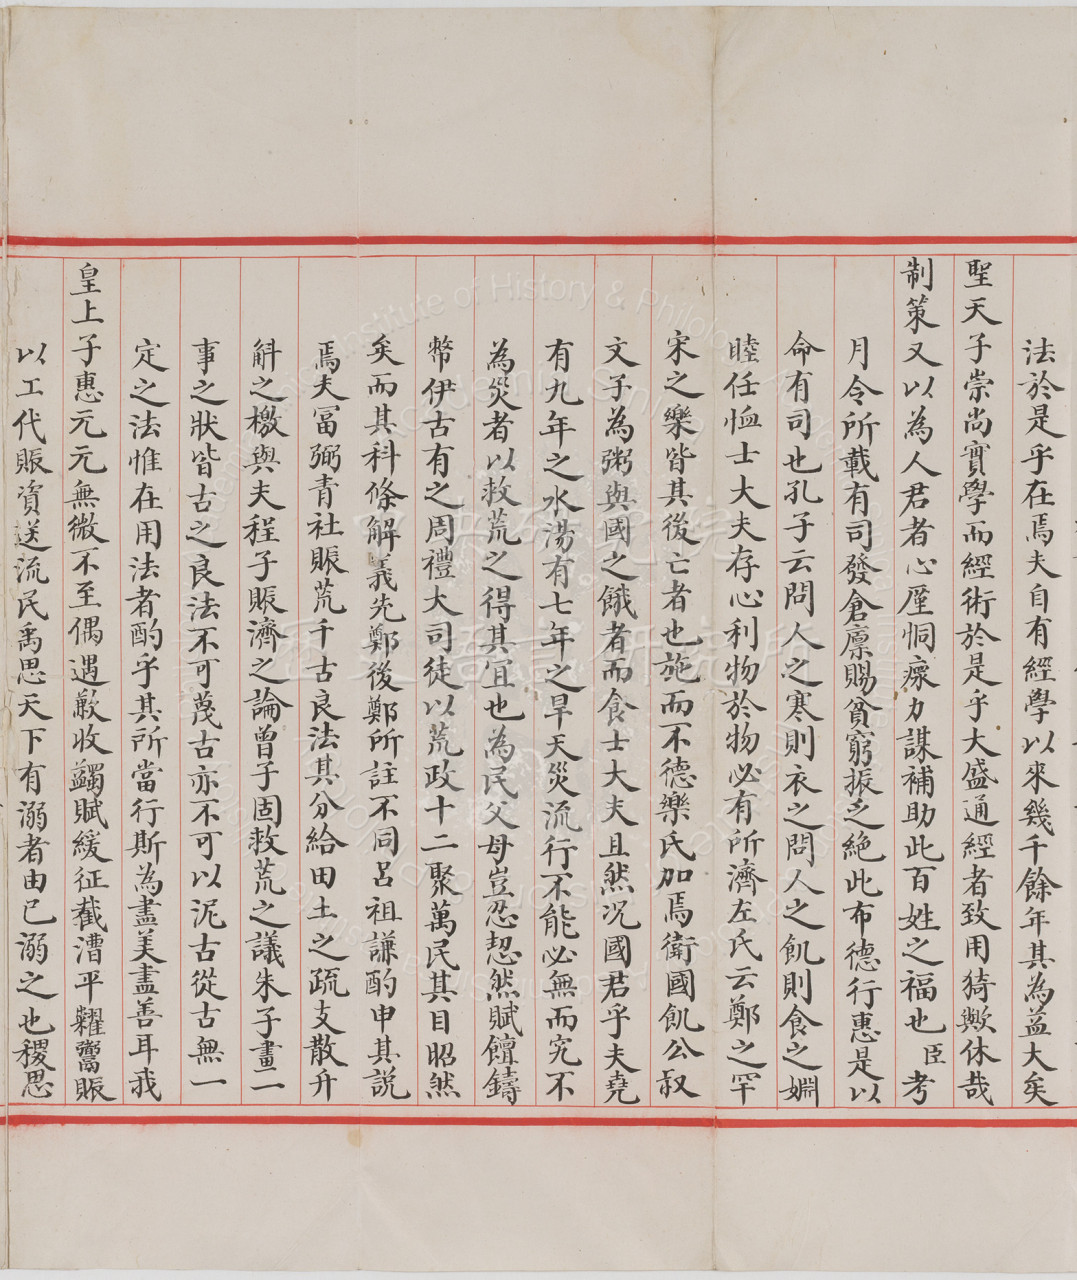 法於是乎在焉夫自有經學以來幾千餘年其為益大矣
聖天子崇尚實學而經術於是乎大盛通經者致用猗歟休哉
制策又以為人君者心厪恫瘝力謀補助此百姓之福也臣考
月令所載有司發倉廪賜貧窮振乏絶此布德行惠是以
命有司也孔子云問人之寒則衣之問人之飢則食之婣
睦任恤士大夫存心利物於物必有所濟左氏云鄭之罕
宋之樂皆其後亡者也施而不德樂氏加焉衛國飢公叔
文子為粥與國之餓者而食士大夫且然况國君乎夫堯
有九年之水湯有七年之旱天災流行不能必無而究不
為災者以救荒之得其宜也為民父母豈忍恝然賦饘鑄
幣伊古有之周禮大司徒以荒政十二聚萬民其目昭然
矣而其科條解義先鄭後鄭所註不同呂祖謙酌申其説
焉夫冨弼青社賑荒千古良法其分給田土之疏支散升
斛之檄與夫程子賑濟之論曾子固救荒之議朱子畫一
事之狀皆古之良法不可蔑古亦不可以泥古從古無一
定之法惟在用法者酌乎其所當行斯為盡美盡善耳我
皇上子惠元元無微不至偶遇歉收蠲賦緩征截漕平糶鬻賑
以工代賑資送流民禹思天下有溺者由己溺之也稷思
Institute of History & Philology
Academia Sinica